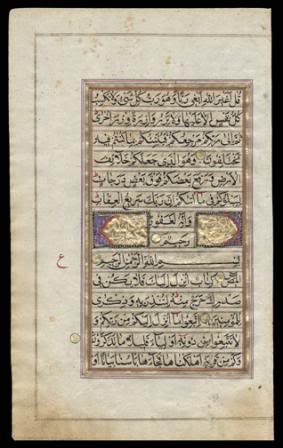 قُلْ أَغَيْرَ اللَّهِ أَبْغِي رَبًّا وَهُوَ رَبُّ كُلِّ شَيْءٍ وَلَا تَكْسِبُ
كُلُّ نَفْسٍ إِلَّا عَلَيْهَا وَلَا تَزِرُ وَازِرَةٌ وِزْرَ أُخْرَى
ثُمَّ إِلَى رَبِّكُمْ مَرْجِعُكُمْ فَيُنَبِّئُكُمْ بِمَا كُنْتُمْ فِيهِ
تَخْتَلِفُونَ وَهُوَ الَّذِي جَعَلَكُمْ خَلَائِفَ
الْأَرْضِ وَرَفَعَ بَعْضَكُمْ فَوْقَ بَعْضٍ دَرَجَاتٍ
لِيَبْلُوَكُمْ فِي مَا آتَاكُمْ إِنَّ رَبَّكَ سَرِيعُ الْعِقَابِ
وَإِنَّهُ لَغَفُورٌ
رَحِيمٌ
بِسْمِ اللَّهِ الرَّحْمَنِ الرَّحِيمِ
المص كِتَابٌ أُنْزِلَ إِلَيْكَ فَلَا يَكُنْ فِي
صَدْرِكَ حَرَجٌ مِنْهُ لِتُنْذِرَ بِهِ وَذِكْرَى
لِلْمُؤْمِنِينَ اتَّبِعُوا مَا أُنْزِلَ إِلَيْكُمْ مِنْ رَبِّكُمْ وَ
لَا تَتَّبِعُوا مِنْ دُونِهِ أَوْلِيَاءَ قَلِيلًا مَا تَذَكَّرُونَ
وَكَمْ مِنْ قَرْيَةٍ أَهْلَكْنَاهَا فَجَاءَهَا بَأْسُنَا بَيَاتًا أَوْ
ع